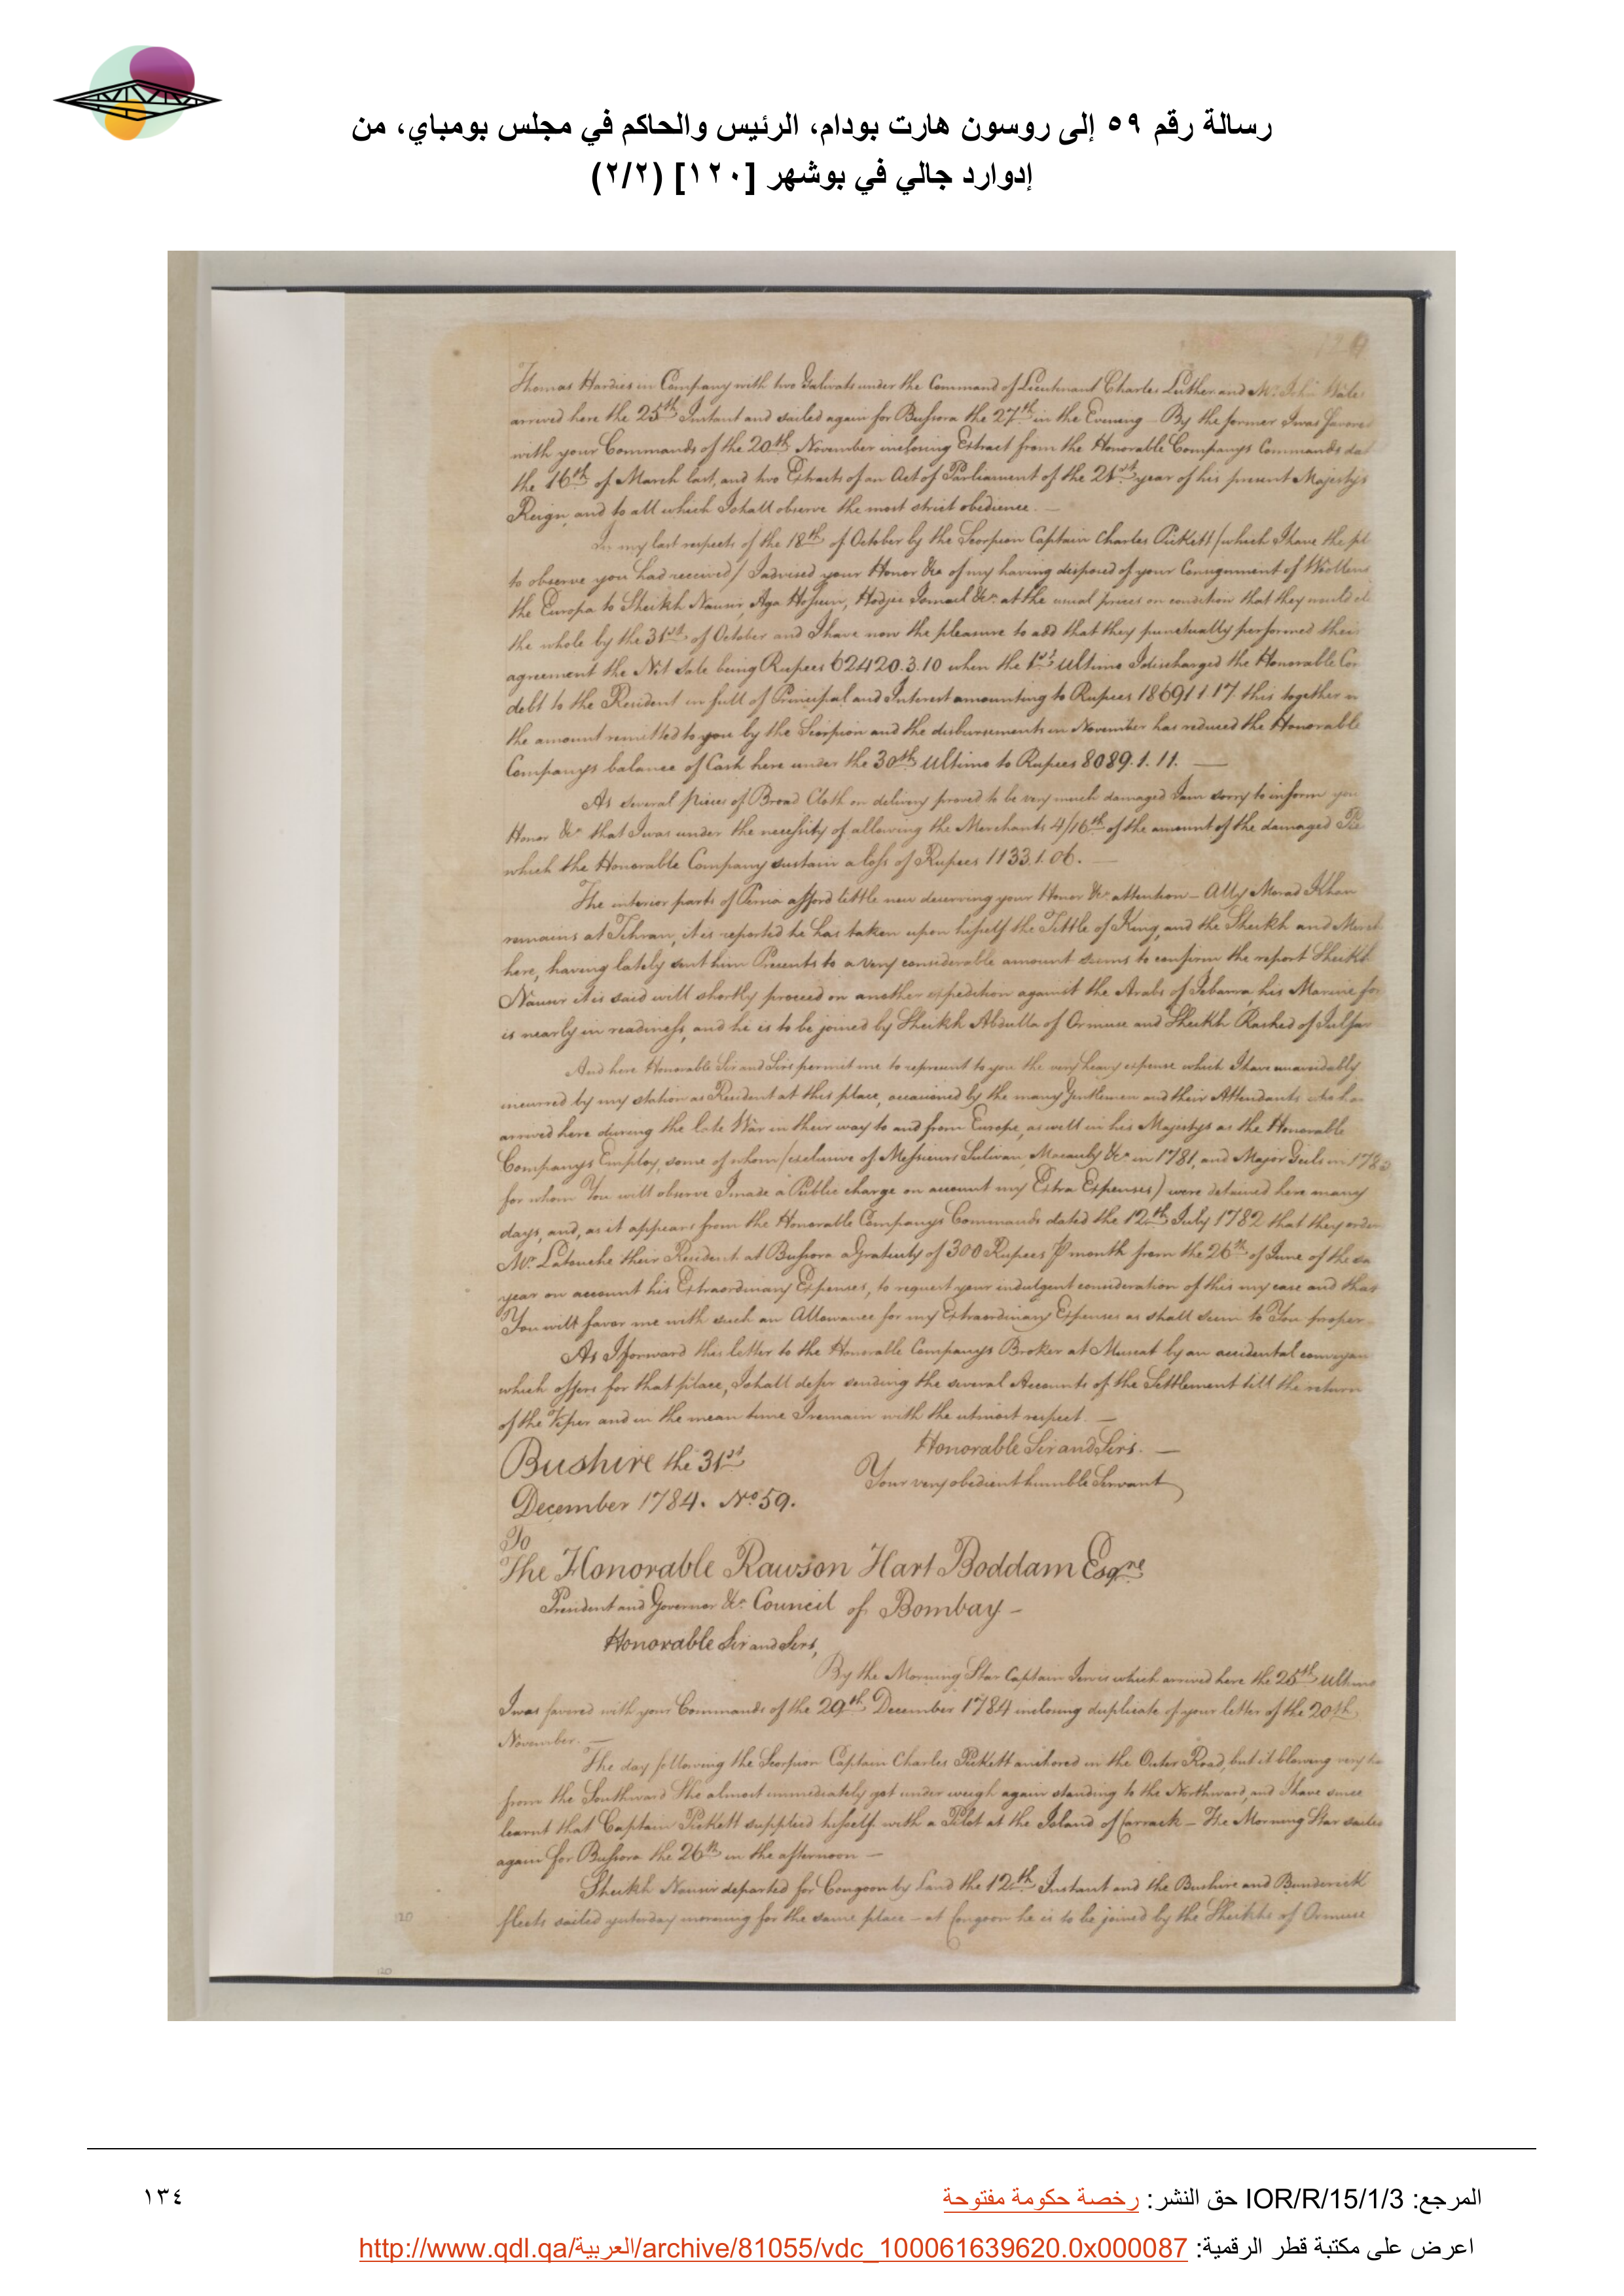 رسالة رقم ٥٩ إلى روسون هارت بودام، الرئيس والحاكم في مجلس بومباي، من
إدوارد جالي في بوشهر [١٢٠] (٢/٢)
Thomas Hardies in Company with two Galivats under the Command of Lieutenant Charles Luther and Mr. John Wales
arrived here the 25th Instant and sailed again for Bussora the 27th in the Evening – By the former I was favored
with your Commands of the 20th November inclosing Extract from the Honorable Companys Commands dat
the 16th of March last, and two Extracts of an Act of Parliament of the 21st year of his present Majestys
Reign, and to all which I shall observe the most strict obedience. —
In my last respects of the 18th of October by the Scorpion Captain Charles Pickett / which I have the pl
to observe you had received / I advised your Honor &c. of my having disposed of your Consignment of Wollens
the Europa to Sheikh Nausir, Aga Hossein, Hodjee Ismael &c. at the usual prices on condition that they would cl
the whole by the 31st of October and I have now the pleasure to add that they punctually performed their
agreement the Net Sale being Rupees 62420.3.10 when the 1st Ultimo I discharged the Honorable Co
debt to the Resident in full of Principal and Interest amounting to Rupees 18691.1.17 this together
the amount remitted to you by the Scorpion and the disbursements in November has reduced the Honorable
Companys balance of Cash here under the 30th Ultimo to Rupees 8089.1.11. —
As several pieces of Broad Cloth on delivery proved to be very much damaged I am sorry to inform you
Honor &c. that I was under the necessity of allowing the Merchants 4/16th of the amount of the damaged Pie
which the Honorable Company sustain a loss of Rupees 1133.1.06. —
The interior parts of Persia afford little new deserving your Honor &c. attention – Ally Morad Khan
remains at Tehran, it is reported he has taken upon hisself the Tittle of King, and the Sheikh and Merch
here, having lately sent him Presents to a very considerable amount seems to confirm the report Sheikh
Nausir it is said will shortly proceed on another expedition against the Arabs of Zebarra, his Marine for
is nearly in readiness, and he is to be joined by Sheikh Abdulla of Ormuse and Sheikh Rashed of Julfar
And here Honorable Sir and Sirs permit me to represent to you the very heavy expense which I have unavoidably
incurred by my station as Resident at this place, occasioned by the many Gentlemen and their Attendants who ha
arrived here during the late War in their way to and from Europe, as well in his Majestys as the Honorable
Companys Employ, some of whom / exclusive of Messieurs Sulivan, Macauly &c. in 1781, and Major Geils in 178
for whom You will observe I made a Public charge on account my Extra Expenses) were detained here many
days, and, as it appears from the Honorable Companys Commands dated the 12th July 1782 that they order
Mr. Latouche their Resident at Bussora a Gratuity of 300 Rupees P month from the 26th of June of the sa
year on account his Extraordinary Expenses, to request your indulgent consideration of this my case and that
You will favor me with such an Allowance for my Extraordinary Expenses as shall seem to You proper
As I forward this letter to the Honorable Companys Broker at Muscat by an accidental conveyan
which offers for that place, I shall defer sending the several Accounts of the Settlement till the return
of the Viper and in the mean time I remain with the utmost respect. —
Honorable Sir and Sirs. —
Your very obedient humble Servant
Bushire the 31st
December 1784. No. 59.
To
The Honorable Rawson Hart Boddam Esqre
President and Governor &c. Council of Bombay –
Honorable Sir and Sirs,
By the Morning Star Captain Jervis which arrived here the 25th Ultimo
I was favored with your Commands of the 29th December 1784 inclosing duplicate of your letter of the 20th
November. —
The day following the Scorpion Captain Charles Pickett anchored in the Outer Road, but it blowing very ha
from the Southward She almost immediately got under weigh again standing to the Northward, and I have since
learnt that Captain Pickett supplied hisself with a Pilot at the Island of Carrack – The Morning Star sailed
again for Bussora the 26th in the afternoon —
Sheikh Nausir departed for Congoon by Land the 12th Instant and the Bushire and Bunderick
fleets sailed yesterday morning for the same place – at Congoon he is to be joined by the Sheikhs of Ormuse
120
120
المرجع: IOR/R/15/1/3 حق النشر: رخصة حكومة مفتوحة
١٣٤
اعرض على مكتبة قطر الرقمية: http://www.qdl.qa/العربية/archive/81055/vdc_100061639620.0x000087